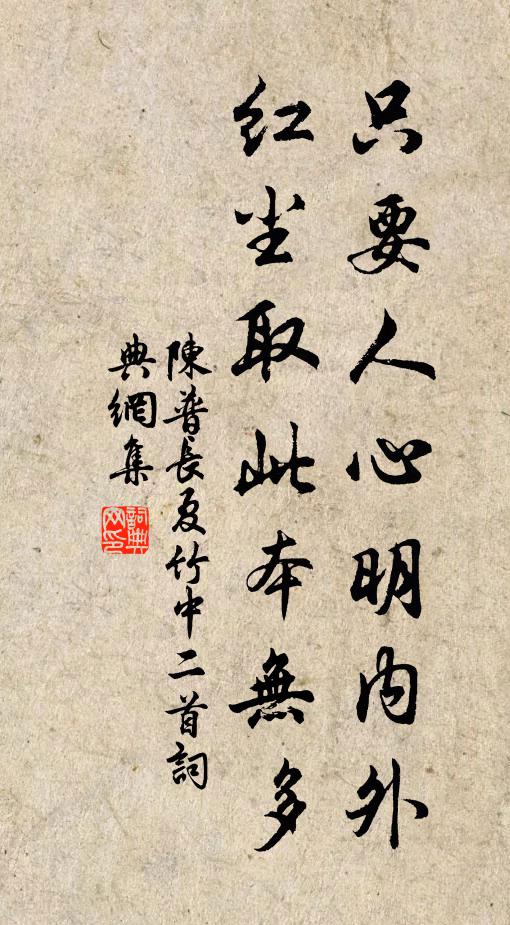 只要人心明内外
紅尘取此本無多
陳普長夏竹中二首詞
典網集
詞典网印